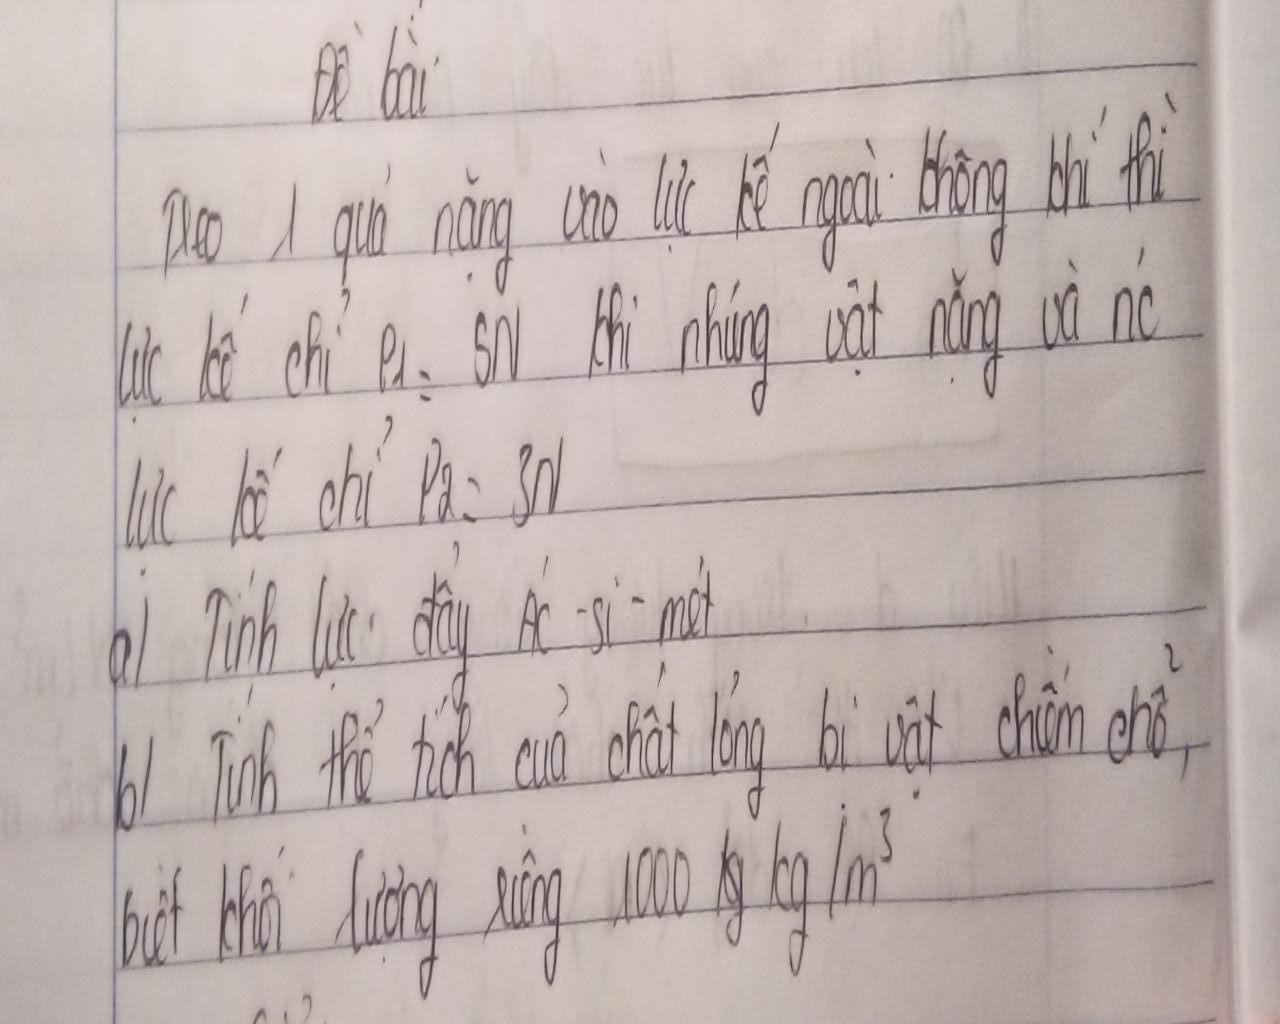 Đề bài
Treo 1 quả nặng vào lực kế ngoài không khí thì
lực kế chỉ P1 = 5N khi nhúng vật nặng và nc
lực kế chỉ P2 = 3N
a) Tính lực đẩy Ác-si-mét
b) Tính thể tích của chất lỏng bị vật chiếm chỗ,
biết khối lượng riêng 1000 kg kg/m³